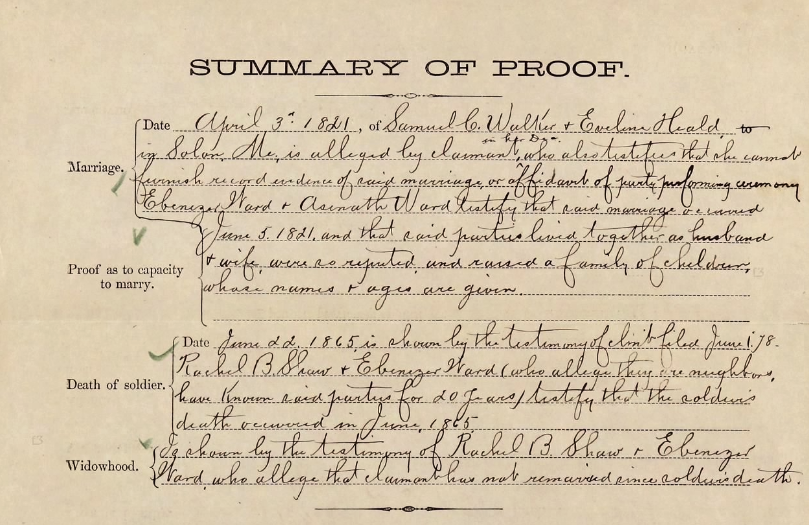 SUMMARY OF PROOF.
Marriage.
Date April 3d 1821, of Samuel C. Walker & Eveline Heald, to
in Solon, Me, is alleged by claimant, in her Dec. who also testifies that she cannot
furnish record evidence of said marriage, or affidavit of party performing ceremony
Ebenezer Ward & Asenath Ward testify that said marriage occurred
Proof as to capacity to marry.
June 5. 1821, and that said parties lived together as husband
& wife, were so reputed, and raised a family of children,
whose names & ages are given.
Death of soldier.
Date June 22, 1865, is shown by the testimony of clmt filed June 1, 78.
Rachel B Shaw & Ebenezer Ward (who allege they are neighbors,
have known said parties for 20 years) testify that the soldier's
death occurred in June, 1865
Widowhood.
Is shown by the testimony of Rachel B. Shaw & Ebenezer
Ward, who allege that claimant has not remarried since soldier's death.